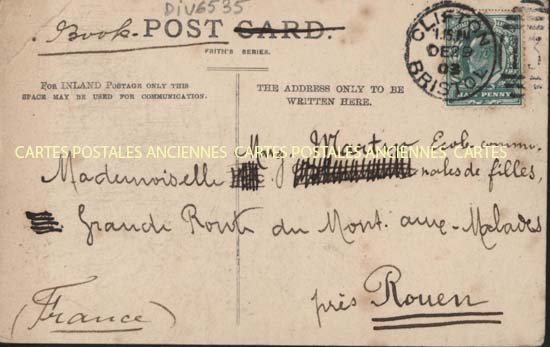 DIV6535
Book POST CARD.
FRITH'S SERIES.
FOR INLAND POSTAGE ONLY THIS
SPACE MAY BE USED FOR COMMUNICATION.
THE ADDRESS ONLY TO BE
WRITTEN HERE.
CLIFTON
BRISTOL
PENNY
CARTES POSTALES ANCIENNES CARTES POSTALES ANCIENNES CARTES
Ecol. commu-
Mademoiselle nales de filles,
Grande Route du Mont. aux-Malades
près Rouen
(France)